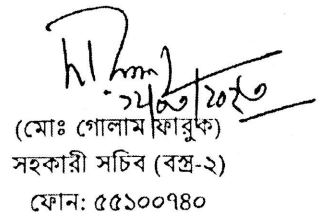 (মোঃ গোলাম ফারুক)
সহকারী সচিব (বস্ত্র-২)
ফোন: ৫৫১০০৭৪০